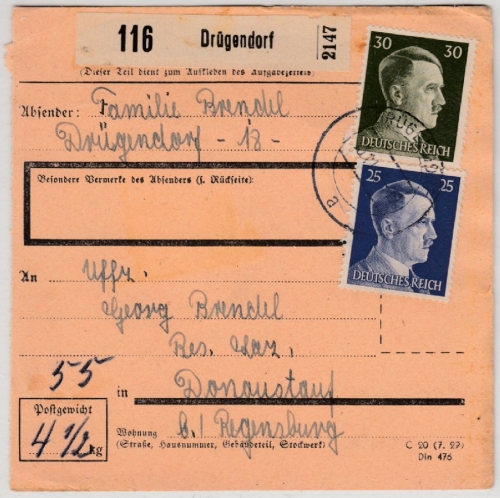 116 Drügendorf 2147
(Dieser Teil dient zum Aufkleben des Aufgabezettels)
30 30
DEUTSCHES REICH
Absender: Familie Brendel
Drügendorf - 13 -
Besondere Vermerke des Absenders (s. Rückseite):
25 25
DEUTSCHES REICH
An Uffz.
Georg Brendel
Res. Laz.
55
in Donaustauf
Postgewicht
4 1/2 kg
Wohnung b./ Regensburg
(Straße, Hausnummer, Gebäudeteil, Stockwerk)
C 20 (7. 29)
Din 476